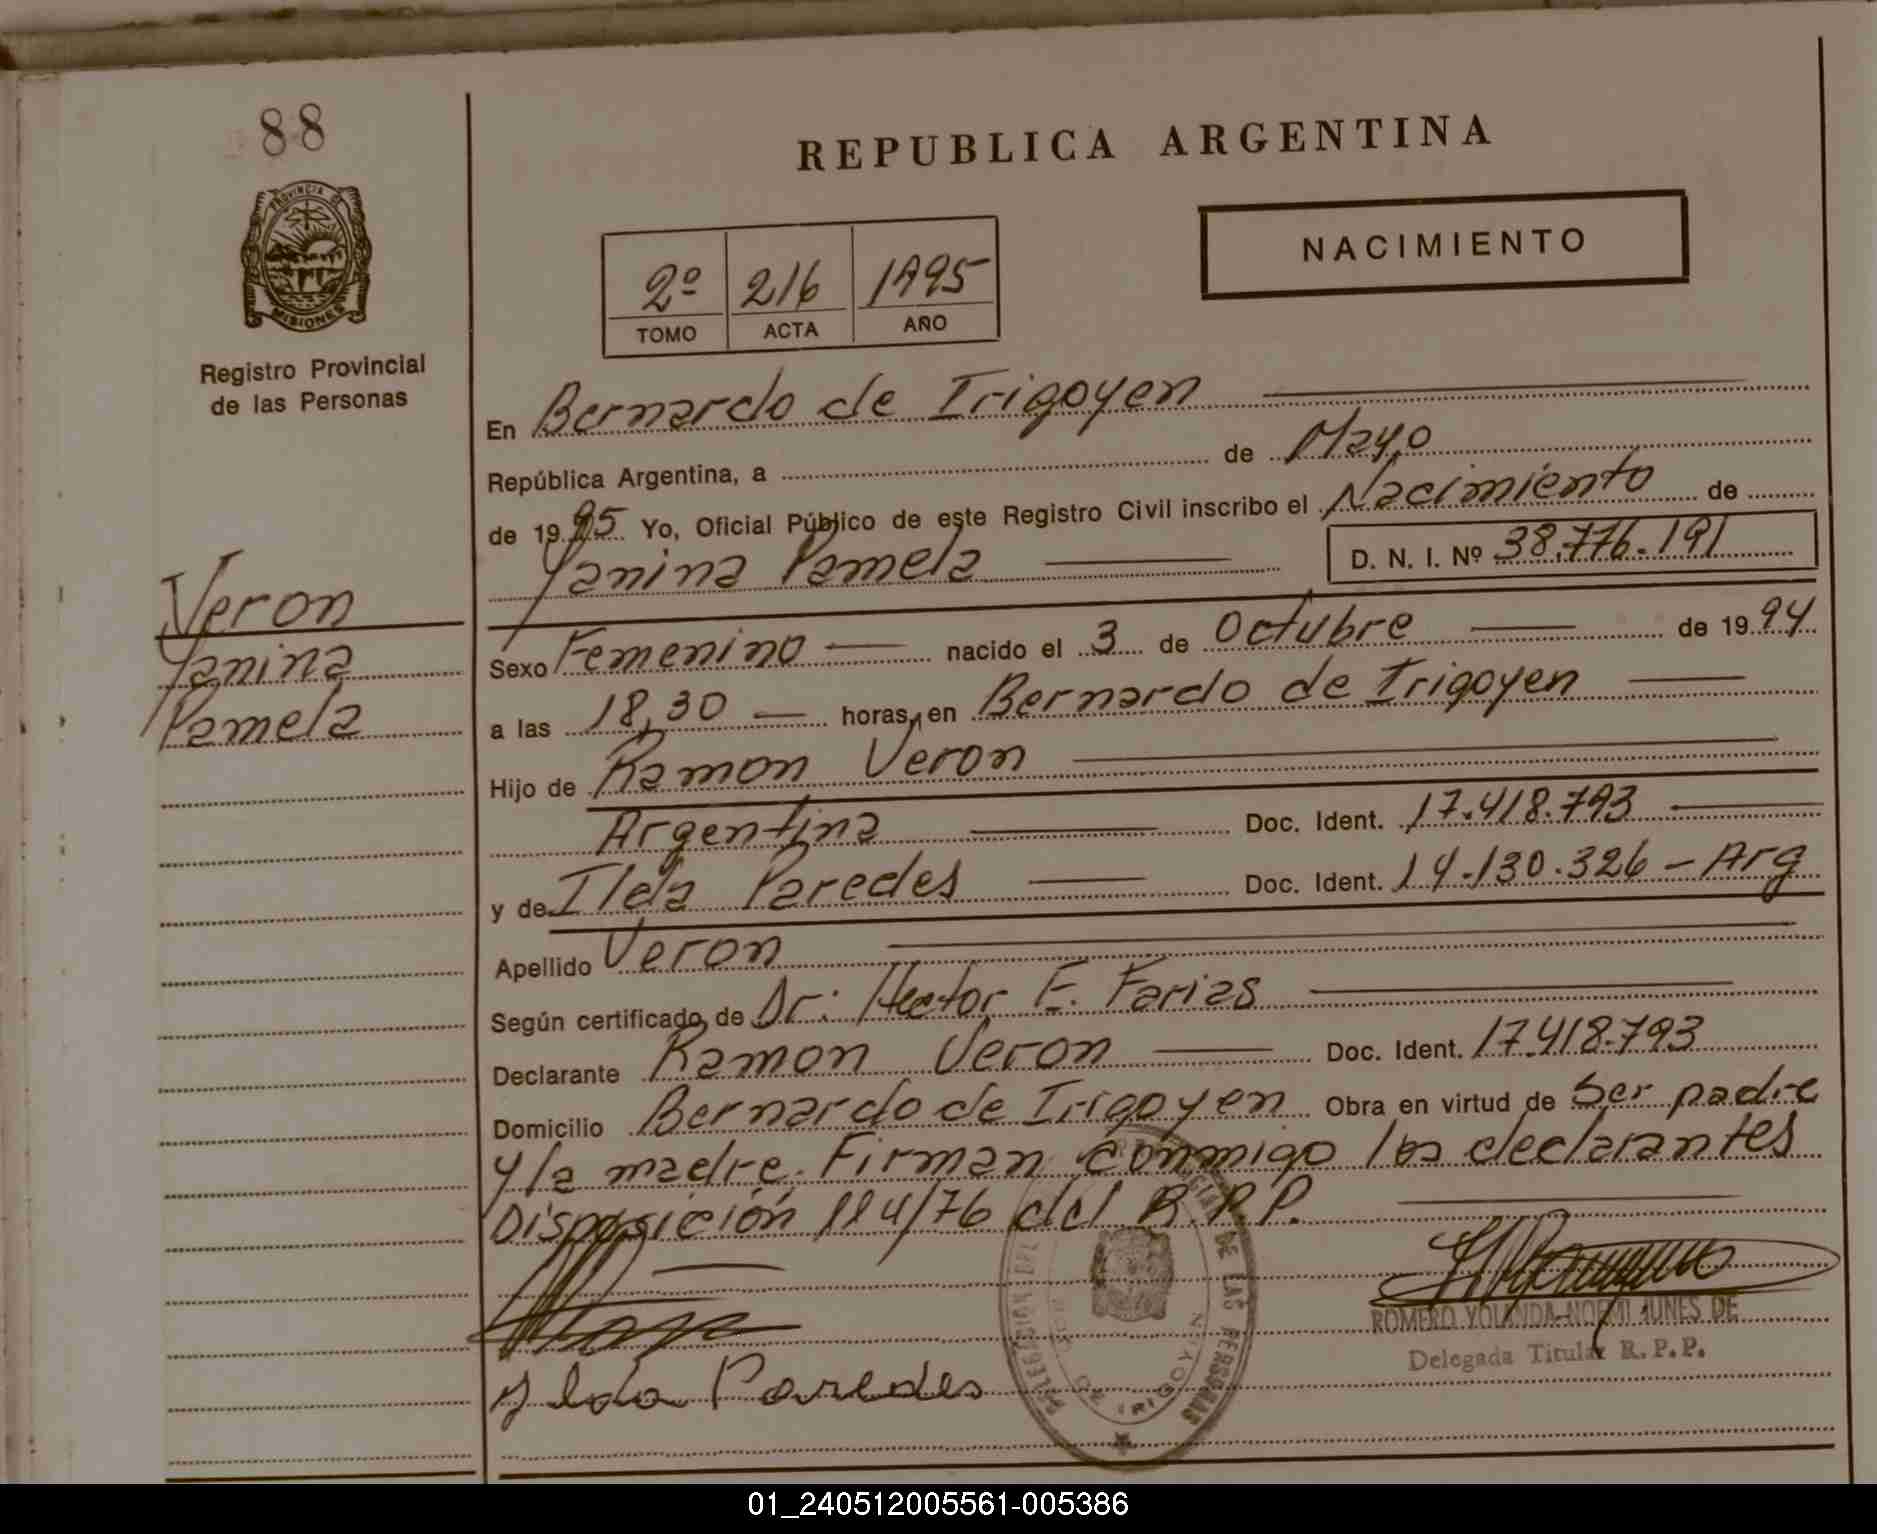 88
PROVINCIA DE
MISIONES
Registro Provincial
de las Personas
Veron
Yanina
Pamela
REPUBLICA ARGENTINA
NACIMIENTO
2º 216 1995
TOMO ACTA AÑO
En Bernardo de Irigoyen
República Argentina, a de Mayo
de 1995 Yo, Oficial Público de este Registro Civil inscribo el Nacimiento de
Yanina Pamela D. N. I. Nº 38.776.191
Sexo Femenino nacido el 3 de Octubre de 1994
a las 18,30 horas, en Bernardo de Irigoyen
Hijo de Ramon Veron
Argentina Doc. Ident. 17.418.793
y de Ilda Paredes Doc. Ident. 14.130.326 - Arg
Apellido Veron
Según certificado de Dr: Hector E. Farias
Declarante Ramon Veron Doc. Ident. 17.418.793
Domicilio Bernardo de Irigoyen Obra en virtud de Ser padre
y la madre. Firman conmigo los declarantes
Disposición 114/76 del R.P.P.
ROMERO YOLANDA NOEMI JUNES DE
Delegada Titular R.P.P.
Ilda Paredes
DELEGACION DEL DE LAS PERSONAS
DE IRIGOYEN
01_240512005561-005386